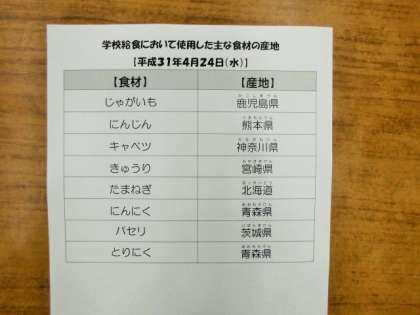 学校給食において使用した主な食材の産地
【平成31年4月24日(水)】
【食材】 【産地】
じゃがいも 鹿児島県
にんじん 熊本県
キャベツ 神奈川県
きゅうり 宮崎県
たまねぎ 北海道
にんにく 青森県
パセリ 茨城県
とりにく 青森県